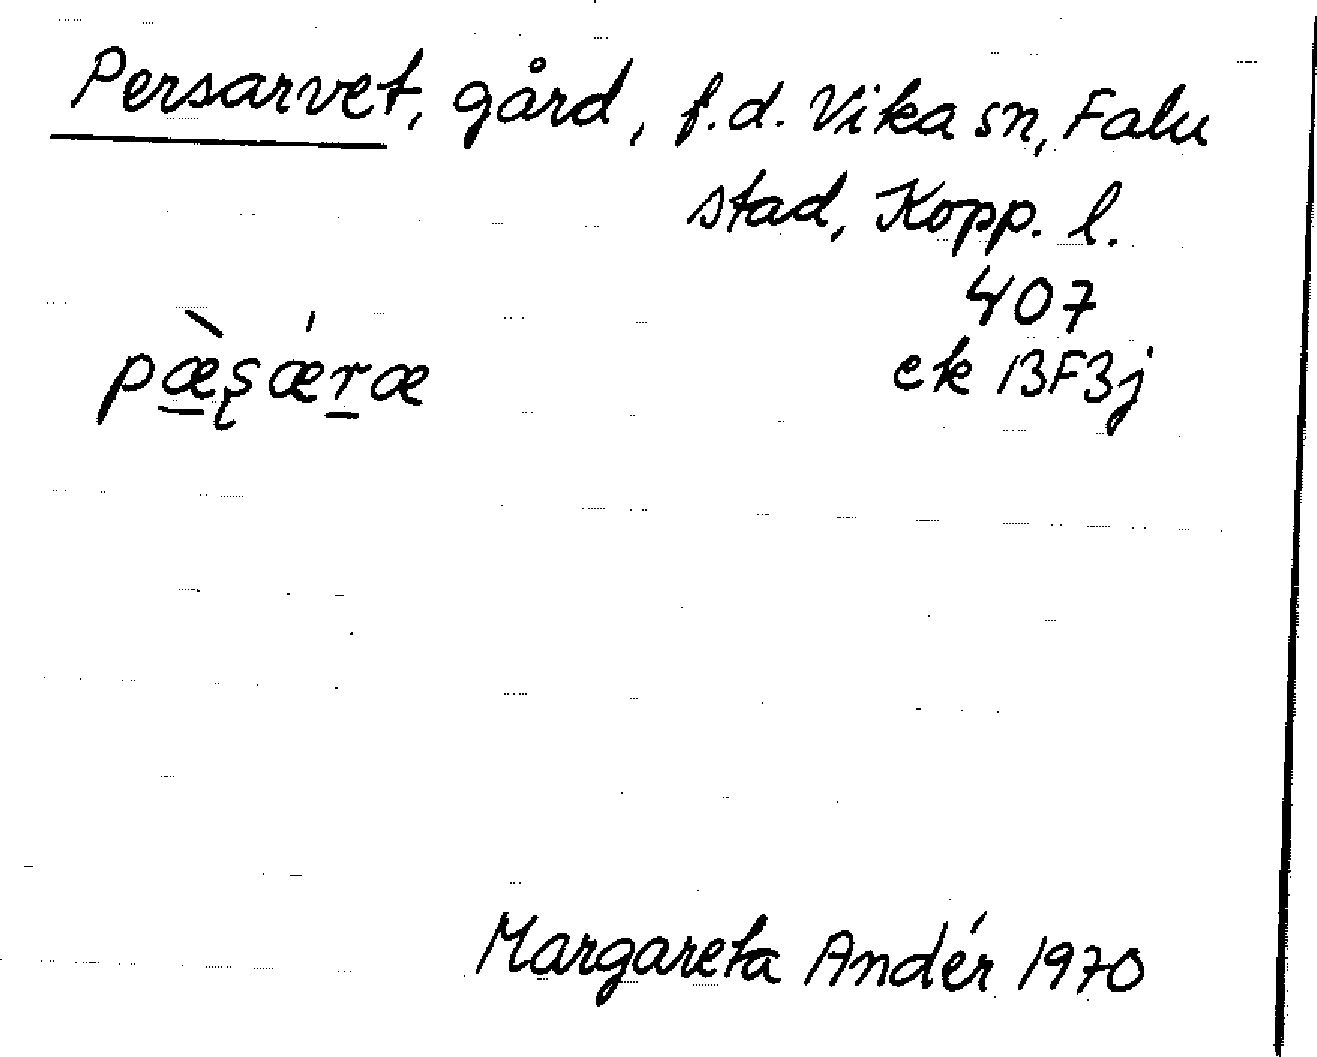 Persarvet, gård, f.d. Vika sn, Falu
stad, Kopp. l.
407
pæ̱̀ʂǽṟæ
ek 13F3j
Margareta Andér 1970